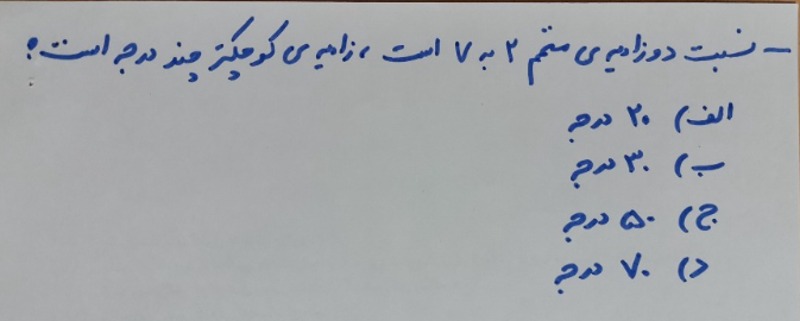 - نسبت دو زاویه ی متمم ۲ به ۷ است، زاویه ی کوچکتر چند درجه است؟
الف) ۲۰ درجه
ب) ۳۰ درجه
ج) ۵۰ درجه
د) ۷۰ درجه